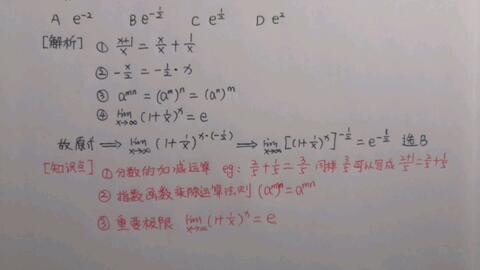 A e^{-2} B e^{-\frac{1}{2}} C e^{\frac{1}{2}} D e^{2}
[解析] ① \frac{x+1}{x} = \frac{x}{x} + \frac{1}{x}
② -\frac{x}{2} = -\frac{1}{2} · x
③ a^{mn} = (a^m)^n = (a^n)^m
④ \lim_{x→∞} (1+\frac{1}{x})^x = e
故原式 ⟹ \lim_{x→∞} (1+\frac{1}{x})^{x·(-\frac{1}{2})} ⟹ \lim_{x→∞} [(1+\frac{1}{x})^x]^{-\frac{1}{2}} = e^{-\frac{1}{2}} 选B
[知识点] ① 分数的加减运算 eg: \frac{2}{5} + \frac{1}{5} = \frac{3}{5} 同样 \frac{3}{5} 可以写成 \frac{2+1}{5} = \frac{2}{5} + \frac{1}{5}
② 指数函数乘除运算法则 (a^m)^n = a^{mn}
③ 重要极限 \lim_{x→∞} (1+\frac{1}{x})^x = e